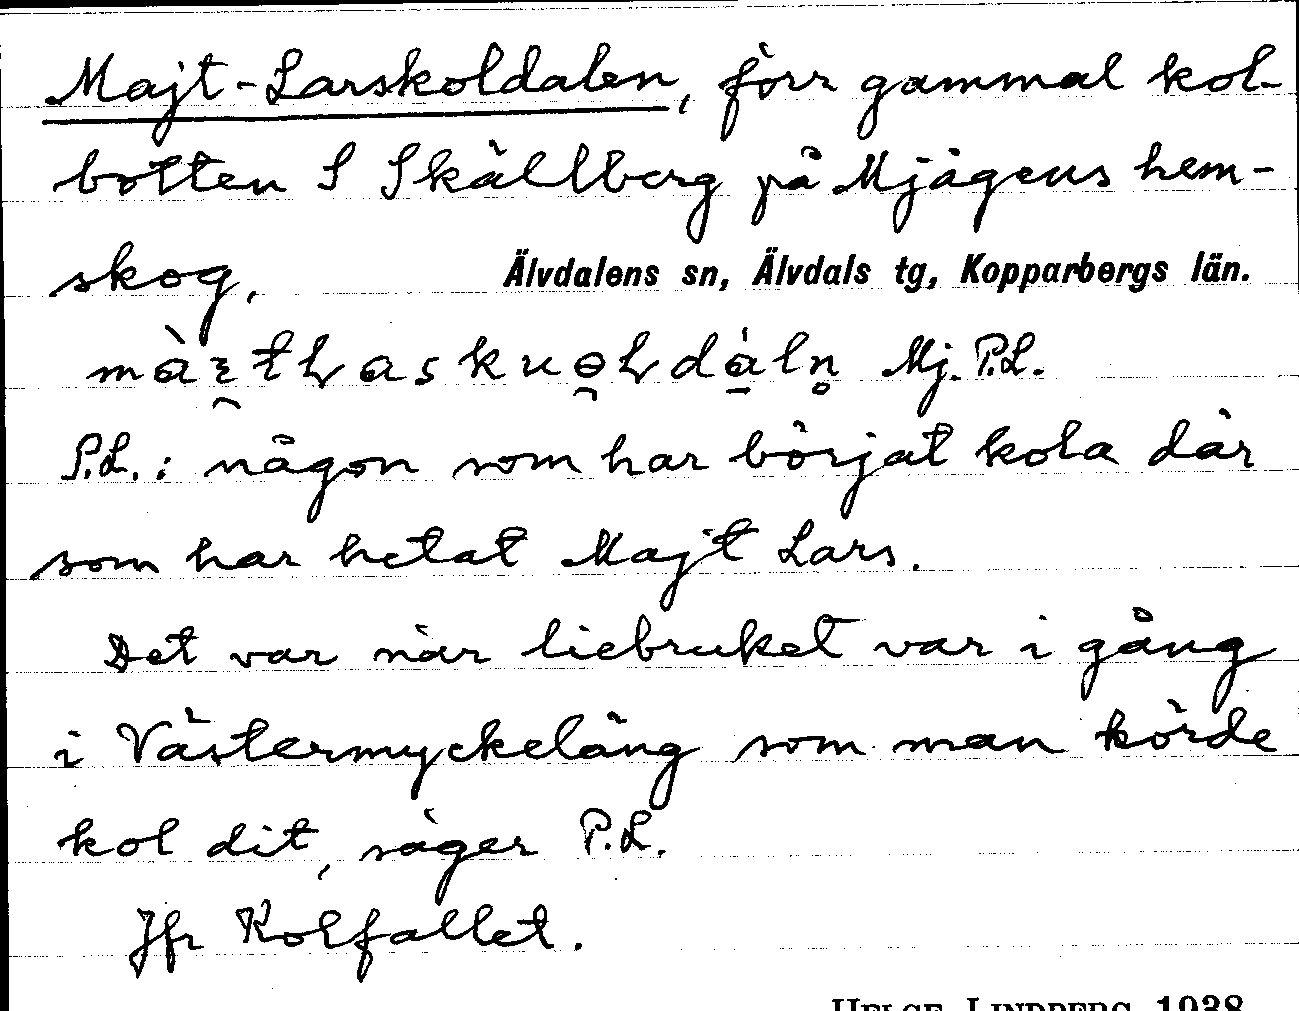 Majt-Larskoldalen, förr gammal kol-
botten S Skällberg på Mjågens hem-
skog,
Älvdalens sn, Älvdals tg, Kopparbergs län.
Mj. P.L.
P.L.: någon som har börjat kola där
som har hetat Majt Lars.
Det var när liebruket var i gång
i Västermyckeläng som man körde
kol dit, säger P.L.
Jfr Kolfallet.
HELGE LINDBERG 1938